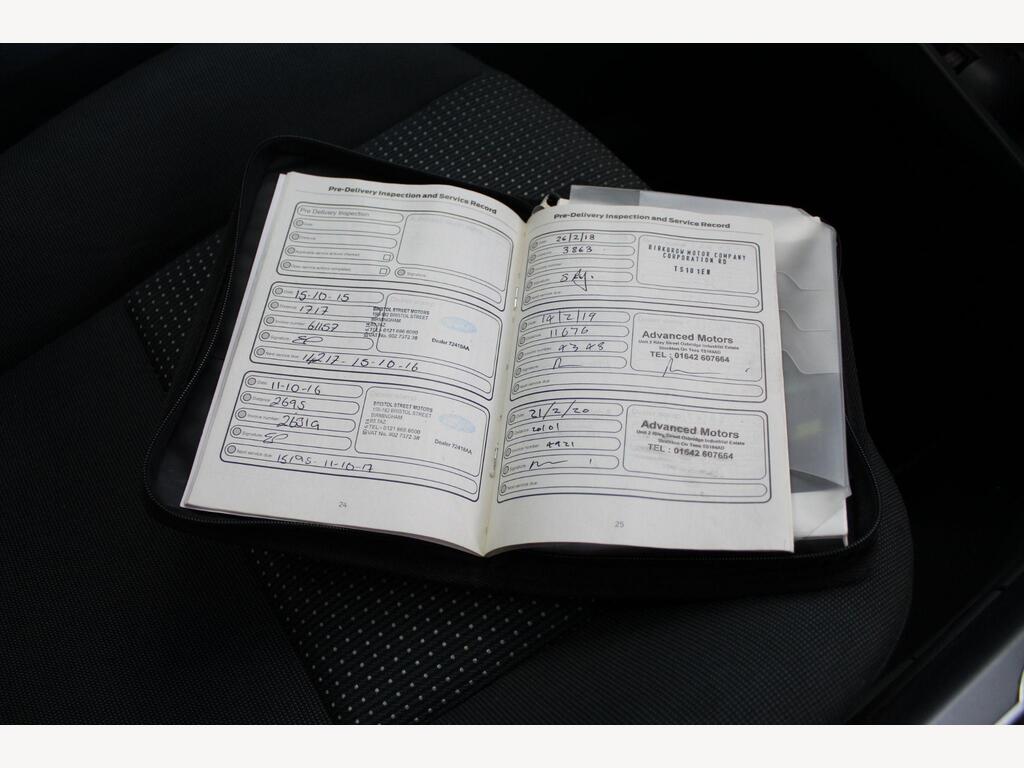 Pre-Delivery Inspection and Service Record
Pre Delivery Inspection
Date
Distance
Applicable service actions checked
Open service actions completed
Signature
Date 15-10-15
Distance 1717
Invoice number 61157
Signature
Next service due 14217 - 15-10-16
BRISTOL STREET MOTORS
BRISTOL STREET
BIRMINGHAM
TEL:- 0121 666 6000
VAT No. 902 7372 38
Dealer 72418AA
Date 11-10-16
Distance 2695
Invoice number
Signature
Next service due 15195 - 11-10-17
BRISTOL STREET MOTORS
BRISTOL STREET
BIRMINGHAM
TEL:- 0121 666 6000
VAT No. 902 7372 38
Dealer 72418AA
24
Pre-Delivery Inspection and Service Record
Date 26/2/18
3863
Next service due
BIRKBROW MOTOR COMPANY
CORPORATION RD
TS10 1EN
Date 14/2/19
11676
number 4348
Next service due
Advanced Motors
Unit 2 Riley Street Oxbridge Industrial Estate
Stockton On Tees TS184AD
TEL : 01642 607664
Date 21/2/20
Distance 20101
Invoice number 4921
Signature
Next service due
Advanced Motors
Unit 2 Riley Street Oxbridge Industrial Estate
Stockton On Tees TS184AD
TEL : 01642 607664
25